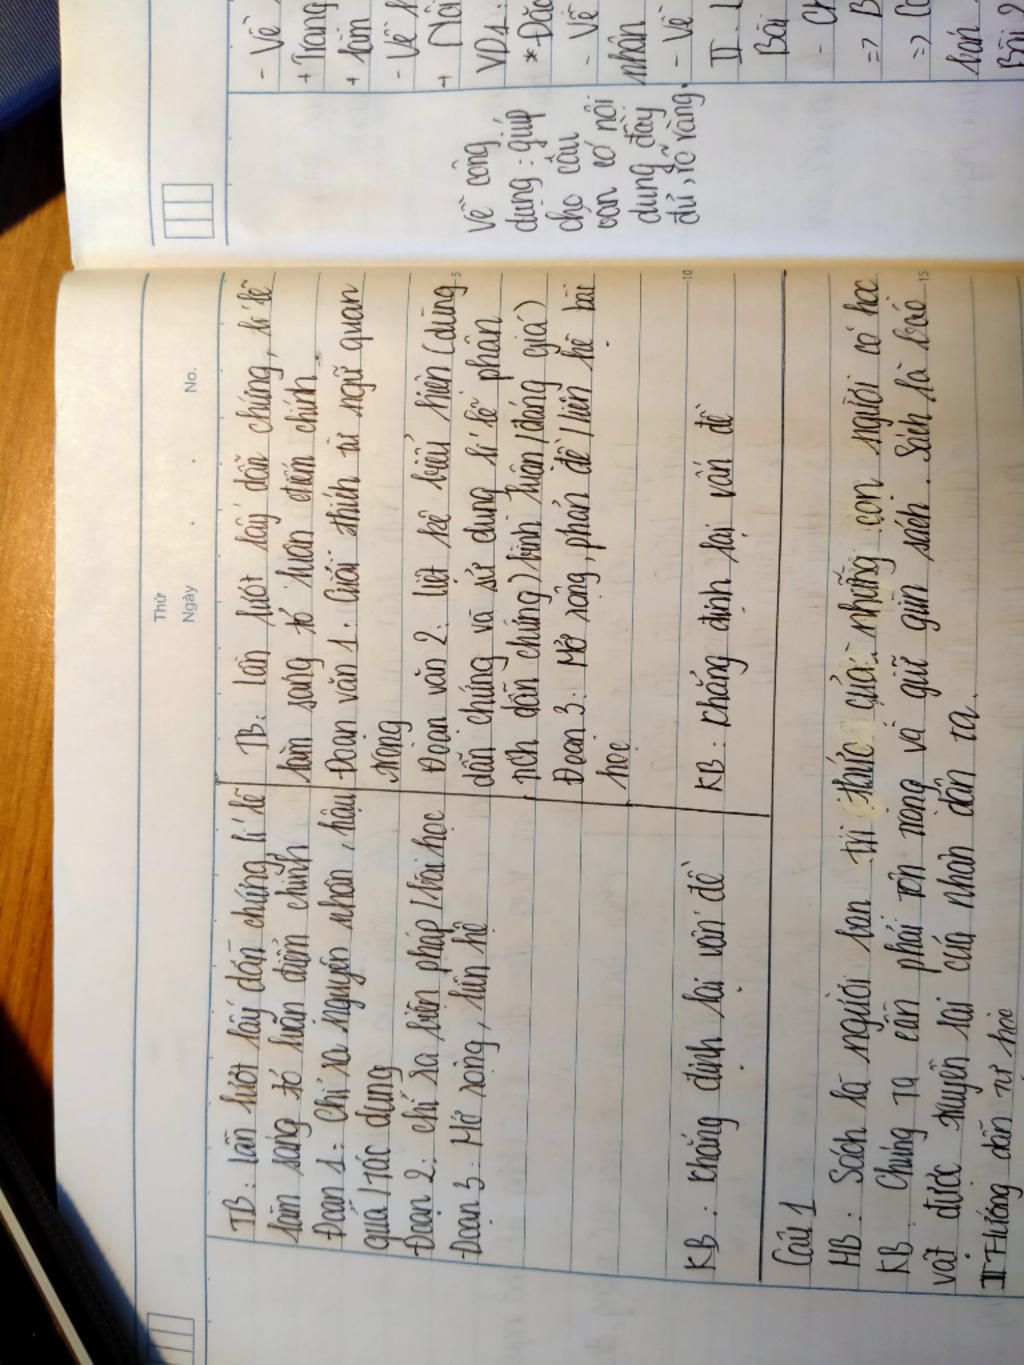 Thứ
Ngày . . No.
TB: lần lượt lấy dẫn chứng lí lẽ
làm sáng tỏ luận điểm chính
Đoạn 1: Chỉ ra nguyên nhân, hậu
quả / tác dụng
Đoạn 2: chỉ ra biện pháp / bài học
Đoạn 3: Mở rộng, liên hệ
KB: khẳng định lại vấn đề
TB: lần lượt lấy dẫn chứng, lí lẽ
làm sáng tỏ luận điểm chính
Đoạn văn 1: Giải thích từ ngữ quan
trọng
Đoạn văn 2: liệt kê biểu hiện (dùng
dẫn chứng và sử dụng lí lẽ phân
tích dẫn chứng) bình luận / đánh giá)
Đoạn 3: Mở rộng, phản đề / liên hệ bài
học
KB: khẳng định lại vấn đề
5
10
15
Câu 1
MB: Sách là người ban tri thức của những con người có học
KB: Chúng ta cần phải tôn trọng và giữ gìn sách. Sách là báu
vật được truyền lại của nhân dân ta.
II Hướng dẫn tự học
Về công
dụng: giúp
cho câu
văn có nội
dung đầy
đủ, rõ ràng.
- Về
+ Trong
+ làm
- Về
+ Nối
VD1:
* Đặc
- Về
nhân
- Về
II.
Bài
- Ch
=> B
=> Co
Bài 2